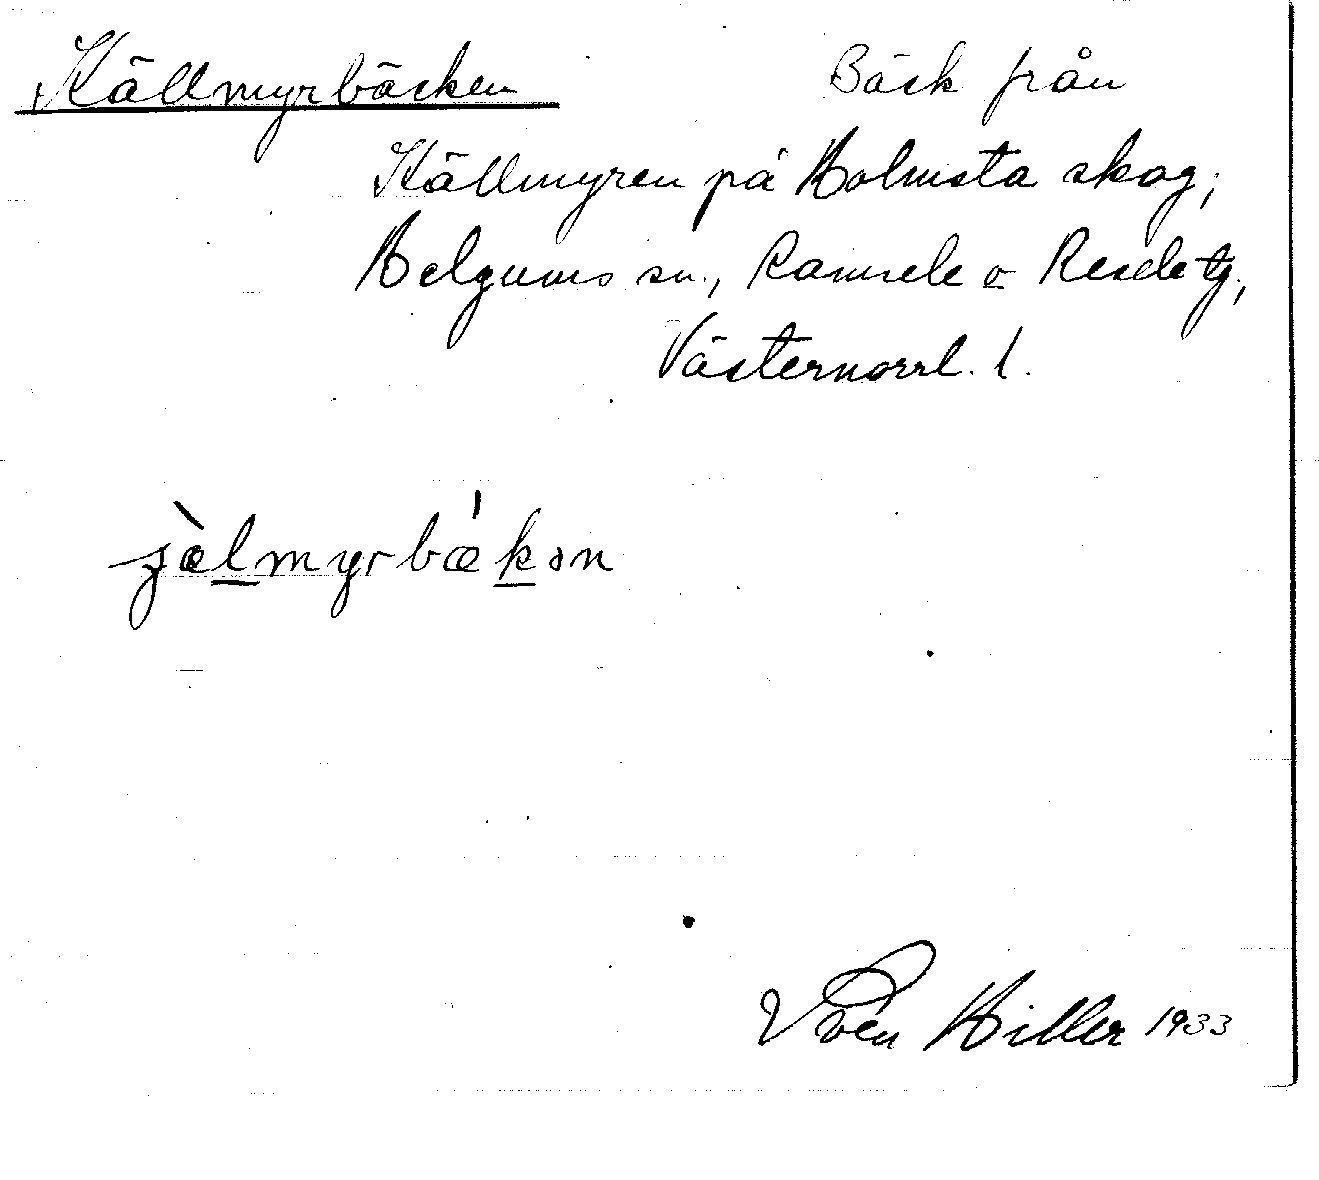 Källmyrbäcken Bäck från
Källmyren på Holmsta skog,
Helgums sn., Ramsele o Resele tg,
Västernorrl. l.
Sven Hiller 1933